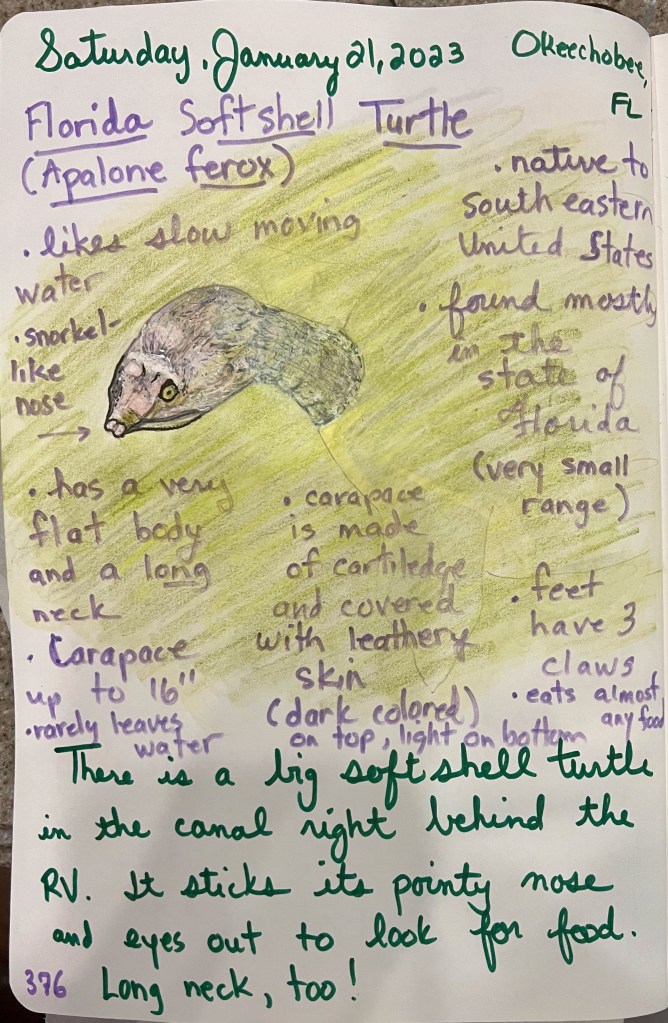 Saturday, January 21, 2023
Okeechobee,
FL
Florida Softshell Turtle
(Apalone ferox)
• likes slow moving
water
• snorkel-
like
nose
→
• native to
south eastern
United States
• found mostly
in the
state of
Florida
(very small
range)
• has a very
flat body
and a long
neck
• Carapace
up to 16"
• rarely leaves
water
• carapace
is made
of cartiledge
and covered
with leathery
skin
(dark colored)
on top, light on bottom
• feet
have 3
claws
• eats almost
any food
There is a big soft shell turtle
in the canal right behind the
RV. It sticks its pointy nose
and eyes out to look for food.
Long neck, too!
376